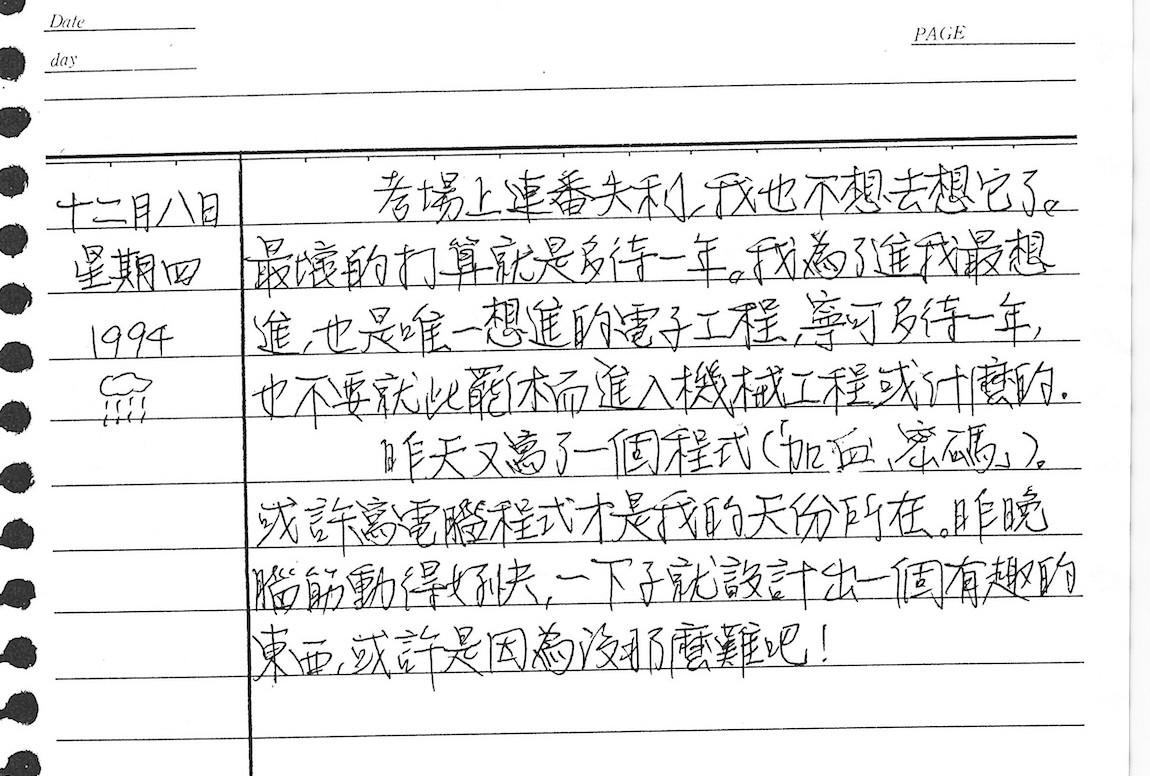 Date
day
PAGE
十二月八日
星期四
1994
考場上連番失利,我也不想去想它了。
最壞的打算就是多待一年。我為了進我最想
進,也是唯一想進的電子工程,寧可多待一年,
也不要就此罷休而進入機械工程或什麼的.
昨天又寫了一個程式(「加血、密碼」)。
或許寫電腦程式才是我的天份所在。昨晚
腦筋動得好快,一下子就設計出一個有趣的
東西,或許是因為沒那麼難吧!